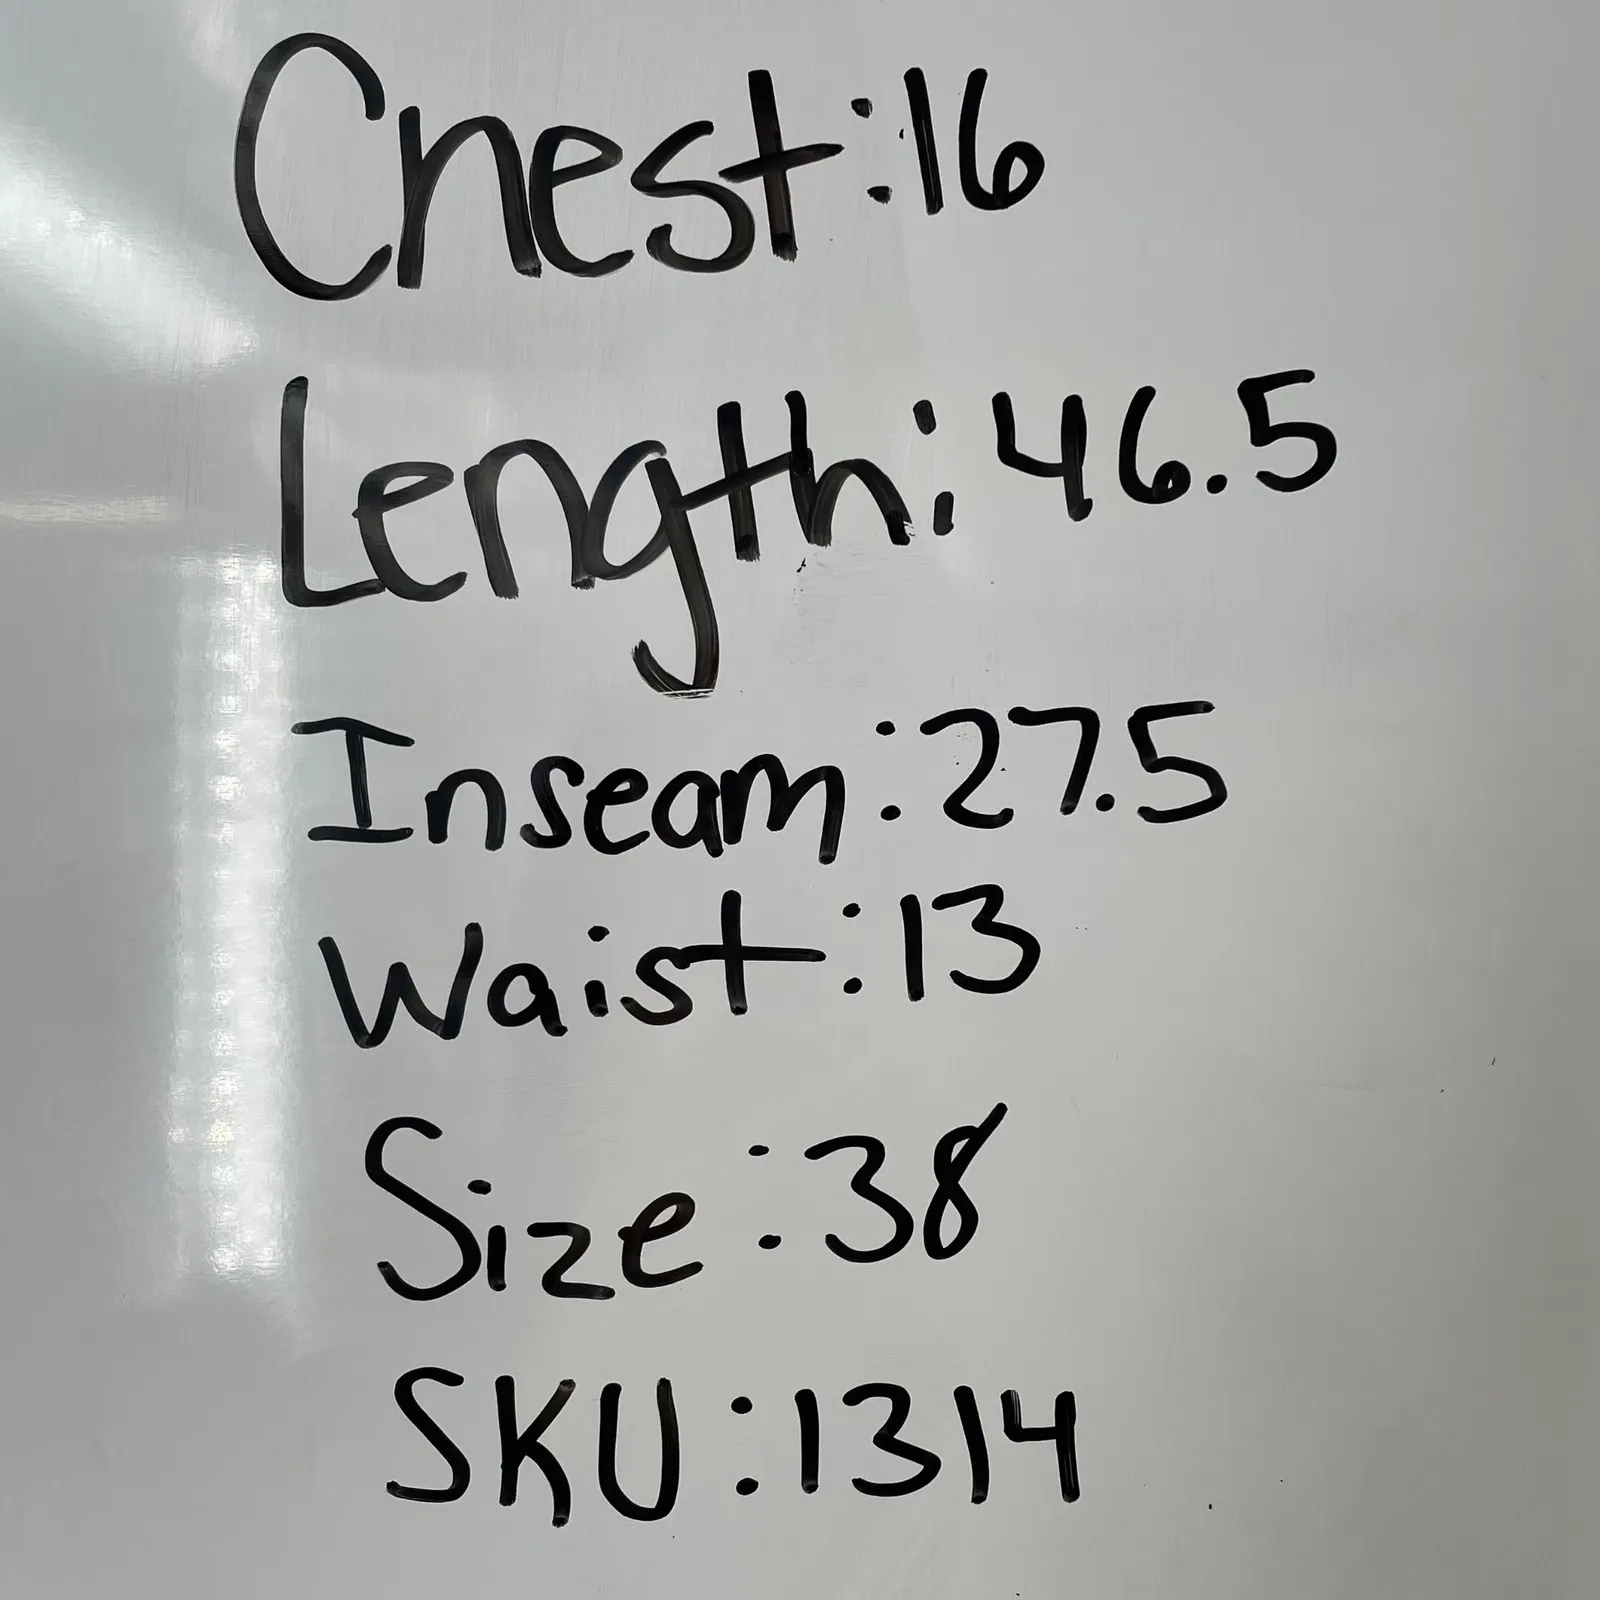 Chest:16
Length: 46.5
Inseam:27.5
Waist:13
Size:38
SKU:1314